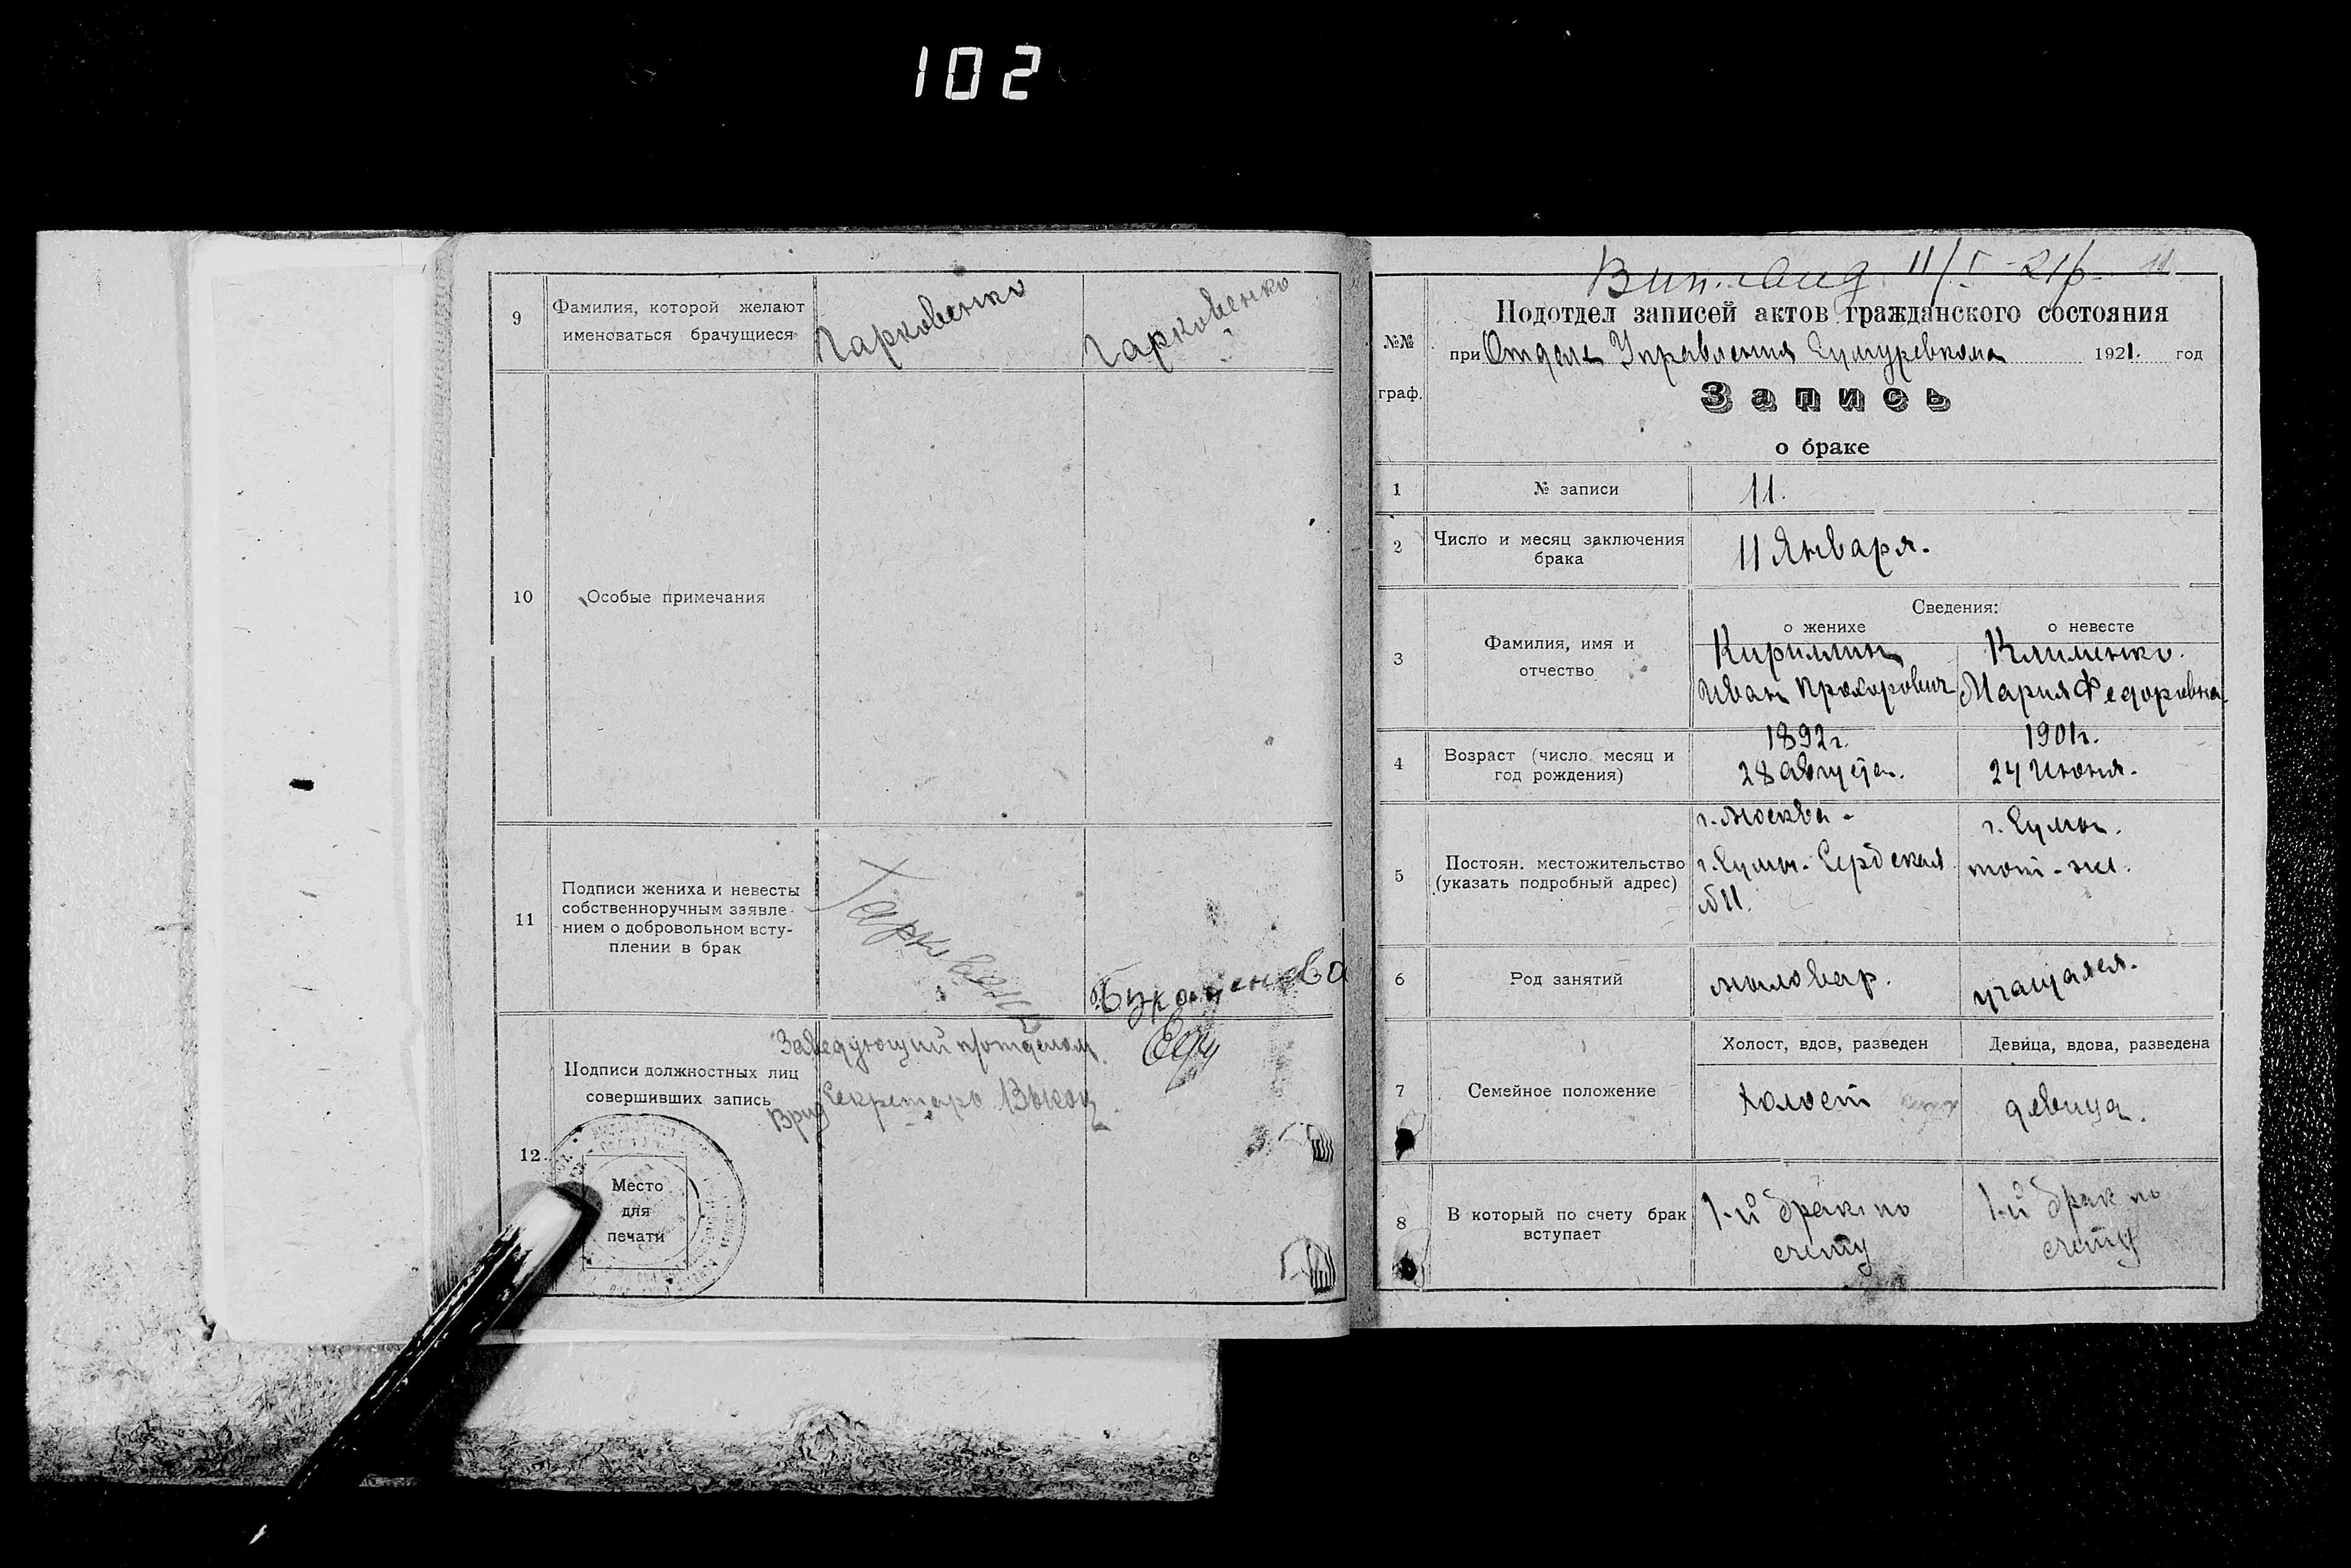 102
9
Фамилия, которой желают
именоваться брачущиеся
Гарковенко
Гарковенко
10
Особые примечания
11
Подписи жениха и невесты
собственноручным заявле-
нием о добровольном всту-
плении в брак
12
Подписи должностных лиц
совершивших запись
Заведующий п/отделом
Врид Секретаря
Место
для
печати
11
№№
граф.
Подотдел записей актов гражданского состояния
при Отделе Управления Сумуревкома 1921. год
Запись
о браке
1
№ записи
11.
2
Число и месяц заключения
брака
11 Января.
3
Фамилия, имя и
отчество
Сведения:
о женихе
о невесте
Кириллин
Иван Прохорович
Клименко.
Мария Федоровна
4
Возраст (число месяц и
год рождения)
1892 г.
28 августа.
1901 г.
24 Июня.
5
Постоян. местожительство
(указать подробный адрес)
г. Москва -
г. Сумы.
№ 11.
г. Сумы.
там - же.
6
Род занятий
мыловар.
учащаяся.
7
Семейное положение
Холост, вдов, разведен
Девица, вдова, разведена
холост
девица.
8
В который по счету брак
вступает
1-й брак по
счету
1-й брак по
счету